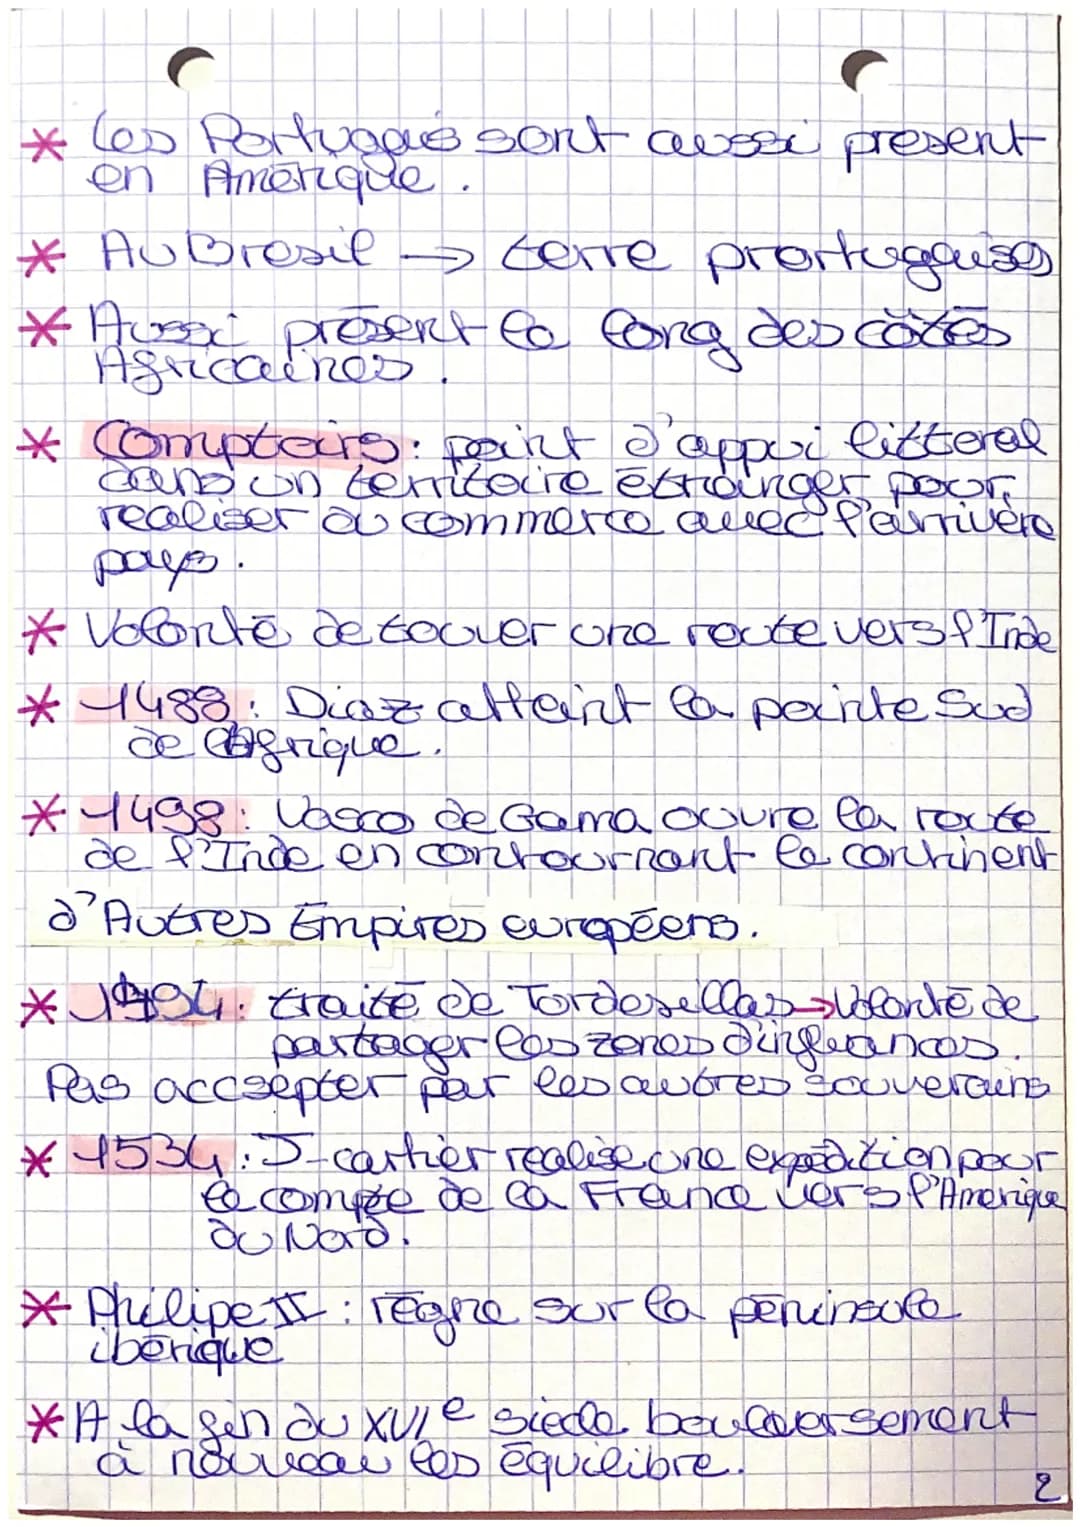 * Les Portugais sont aussi present
en Amérique.
* Au Bresil → terre prortugaises
* Aussi présent la long des côtés
Africaines.
* Comptoirs: point d'appui littoral
dans un territoire étranger pour
realiser du commerce avec l'arrivère
pays.
* Volonté de touver une route vers l'Inde
* 1488: Diaz atteint la pointe Sud
de Afrique.
* 1498: Vasco de Gama ouvre la route
de l'Inde en contournant le continent
d'Autres Empires européens.
* 1494: traité de Tordesillas→Volonté de
partager les zones d'infuances.
Pas accsepter par les autres souverains
* 1534: J-cartier realise une expédition pour
le compte de la France vers l'Amerique
du Nord.
* Philipe II: règne sur la péninsule
ibérique
* A la fin du XVIe siècle bouleversement
à nouveau les équilibre.
2